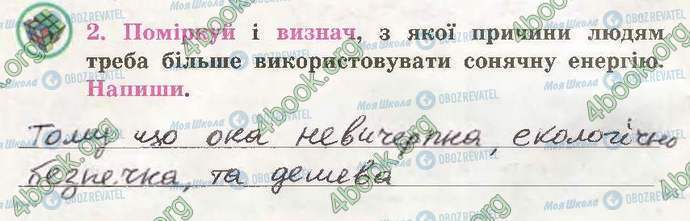 2. Поміркуй і визнач, з якої причини людям
треба більше використовувати сонячну енергію.
Напиши.
Тому що ока невичерпна, екологічно
безпечка, та дешева